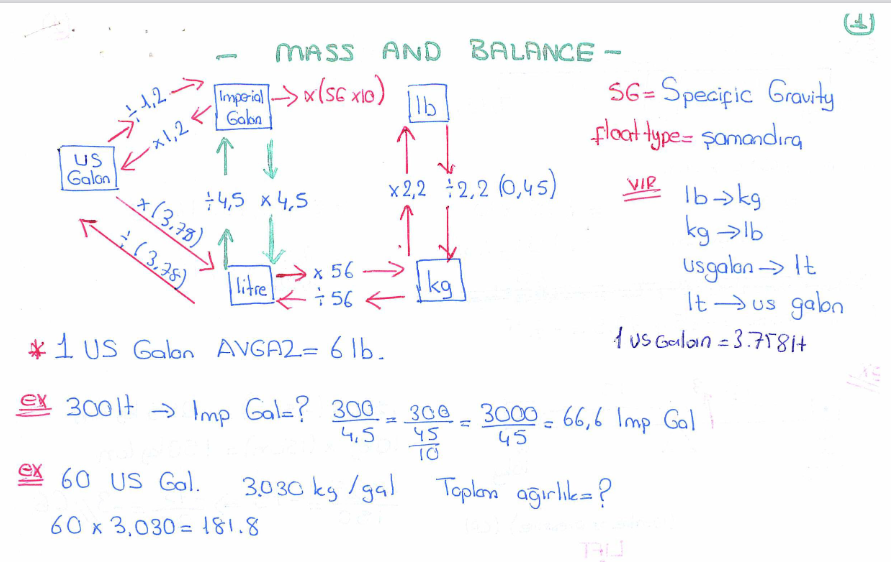 (1)
- MASS AND BALANCE -
÷1,2
x1,2
Imperial Galon
x(SG x10)
lb
US Galon
÷4,5 x 4,5
x2,2 ÷2,2 (0,45)
x (3,78)
÷ (3,78)
litre
x SG
÷ SG
kg
SG= Specific Gravity
float type= şamandıra
VIR
lb→kg
kg→lb
usgalon→ lt
lt → us galon
1 US Galon = 3.758 lt
* 1 US Galon AVGAZ= 6 lb.
ex 300 lt → Imp Gal=? 300/4,5 = 300/(45/10) = 3000/45 = 66,6 Imp Gal
ex 60 US Gal. 3.030 kg /gal Toplam ağırlık=?
60 x 3,030 = 181.8